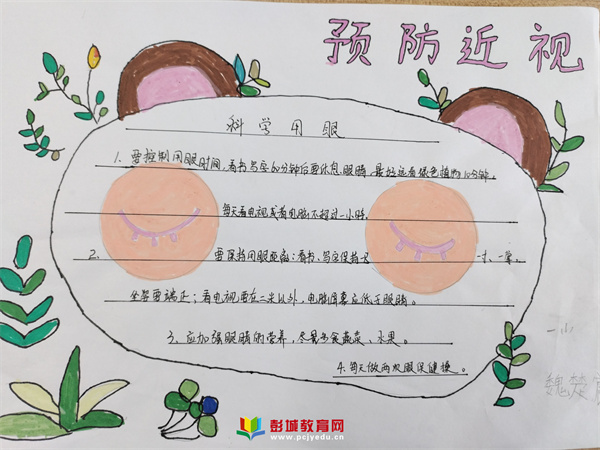 预防近视
科学用眼
1、要控制用眼时间，看书写字60分钟后要休息眼睛，最好远看绿色植物10分钟。
每天看电视或看电脑不超过一小时。
2、要保持用眼距离：看书、写字保持一尺、一寸、一拳。
坐姿要端正；看电视要在二米以外，电脑屏幕应低于眼睛。
3、应加强眼睛的营养，尽量多食蔬菜、水果。
4、每天做两次眼保健操。
一小
魏楚
彭城教育网
www.pcjyedu.cn